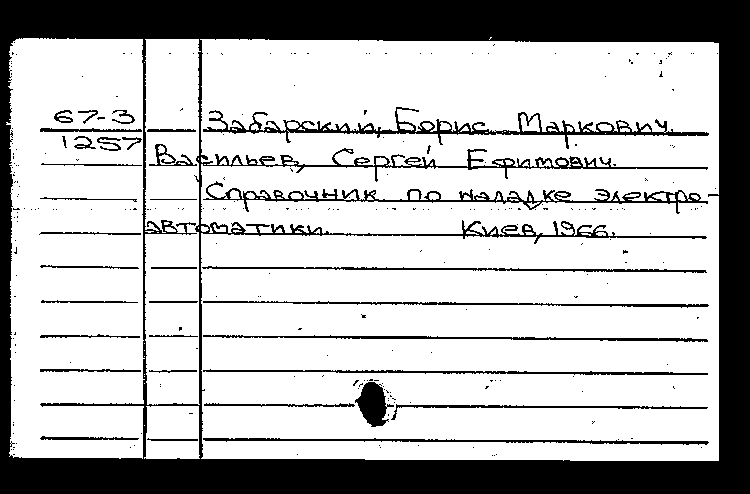 67-3 Забарский, Борис Маркович.
1257 Васильев, Сергей Ефимович.
Справочник по наладке электро-
автоматики. Киев, 1966.